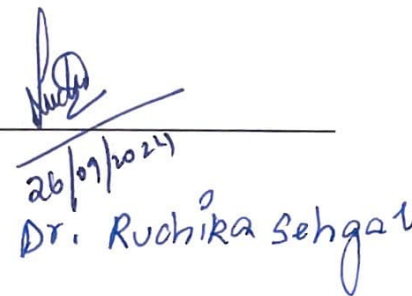 26/09/2024
Dr. Ruchika Sehgal